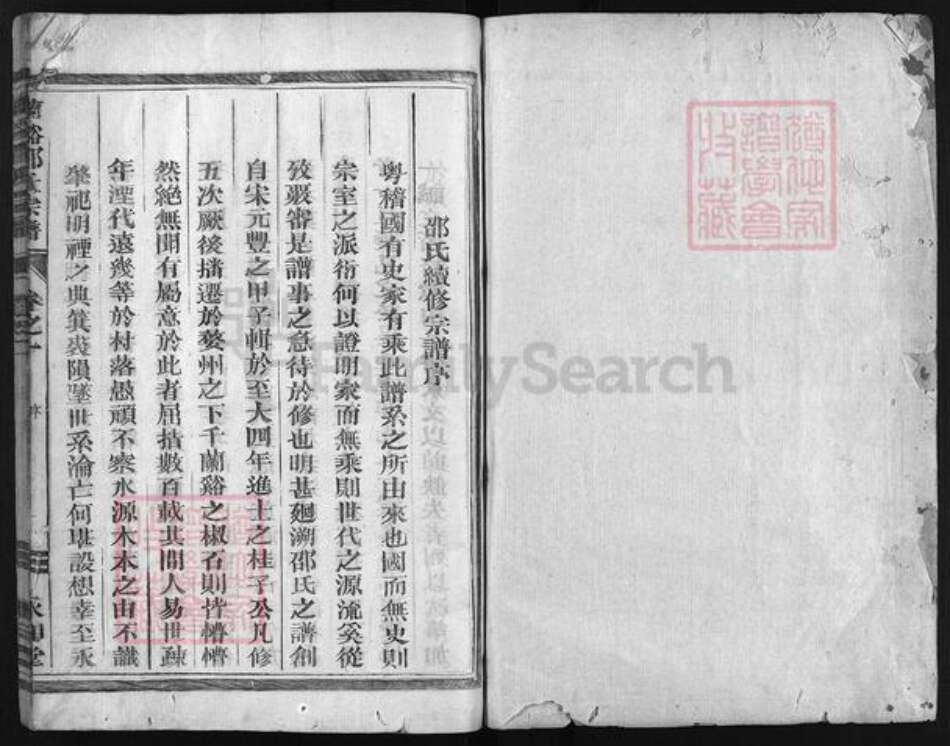 邵氏續修宗譜序
粵稽國有史家有乘此譜系之所由來也國而無史則
宗室之派衍何以證明家而無乘則世代之源流奚從
攷覈審是譜事之急待於修也明甚廻溯邵氏之譜創
自宋元豐之甲子輯於至大四年進士之桂子公凡修
五次厥後播遷於婺州之下千蘭谿之椒石則皆懵懵
然絕無聞有屬意於此者屈指數百載其間人易世疎
年湮代遠幾等於村落愚頑不察水源木本之由不識
肇祀明禋之典箕裘隕墜世系淪亡何堪設想幸至永
蘭谿邵氏宗譜
卷之一
序
永和堂
FamilySearch
譜學會
收藏